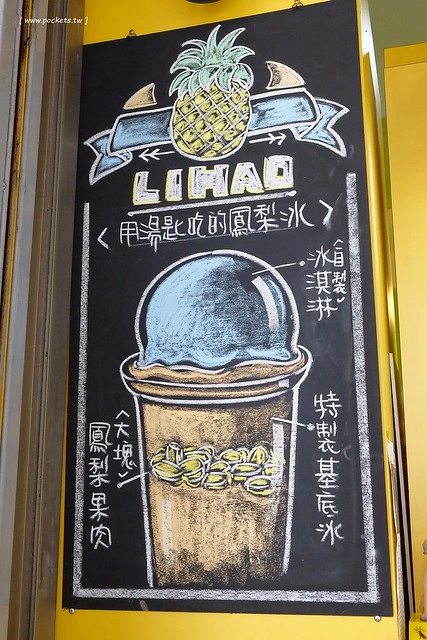 [ www.pockets.tw ]
LIHAO
〈用湯匙吃的鳳梨冰〉
〈自製〉
冰淇淋
特製基底冰
〈大塊〉
鳳梨果肉